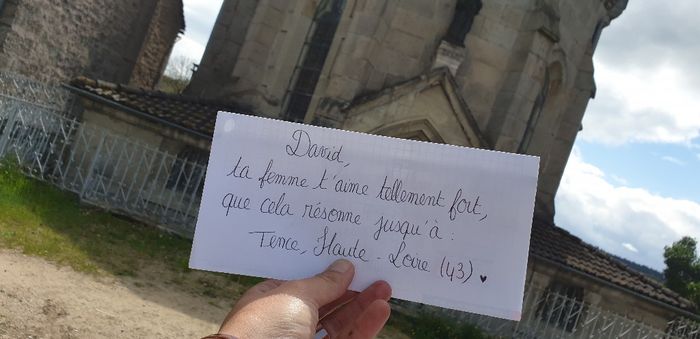 David,
ta femme t'aime tellement fort,
que cela résonne jusqu'à :
Tence, Haute-Loire (43) ♥